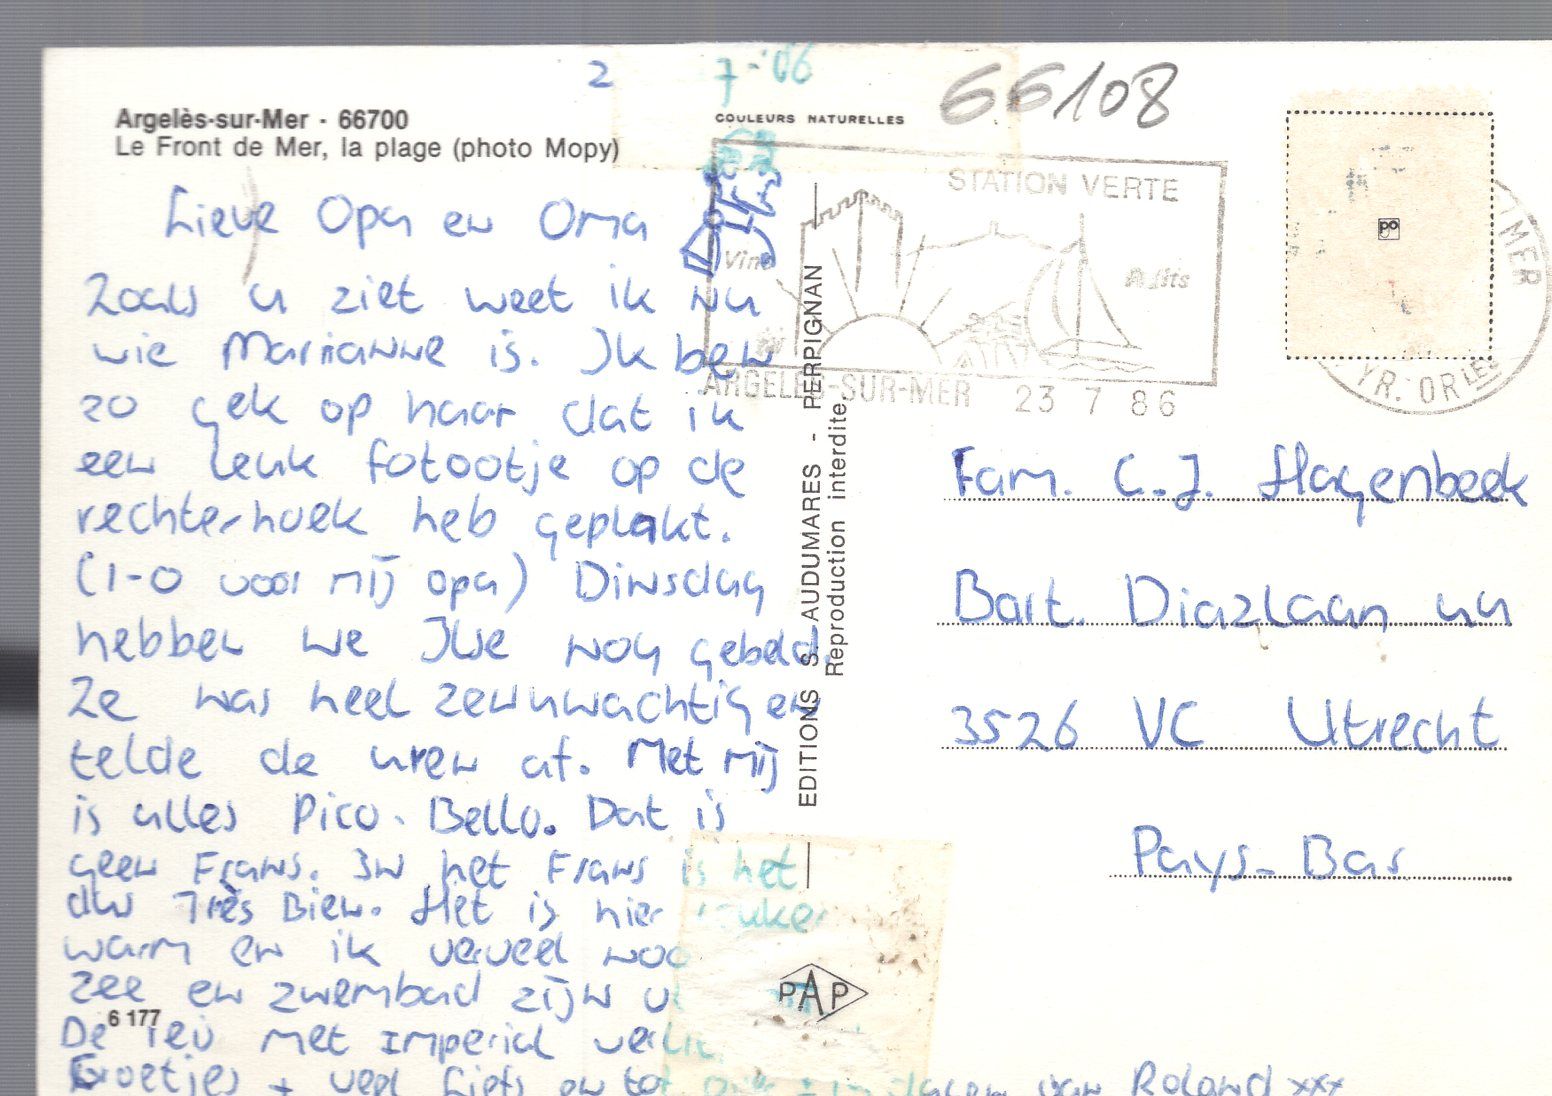 2 7-'86
66108
Argelès-sur-Mer - 66700
Le Front de Mer, la plage (photo Mopy)
COULEURS NATURELLES
STATION VERTE
ARGELES-SUR-MER 23 7 86
MER
YR. OR LES
po
Lieve Opa en Oma
Zoals u ziet weet ik nu
wie Marianne is. Ik ben
zo gek op haar dat ik
een leuk fotootje op de
rechterhoek heb geplakt.
(1-0 voor mij opa) Dinsdag
hebben we Ilse nog gebeld.
Ze was heel zenuwachtig en
telde de uren af. Met mij
is alles Pico-Bello. Dat is
geen Frans. In het Frans is het
dus Très Bien. Het is hier
warm en ik verveel
zee en zwembad zijn
De met Imperial
Groetjes + veel liefs en tot van Roland xxx
6 177
EDITIONS S. AUDUMARES - PERPIGNAN
Reproduction interdite
PAP
Fam. C.J. Hagenbeek
Bart. Diazlaan
3526 VC Utrecht
Pays-Bas